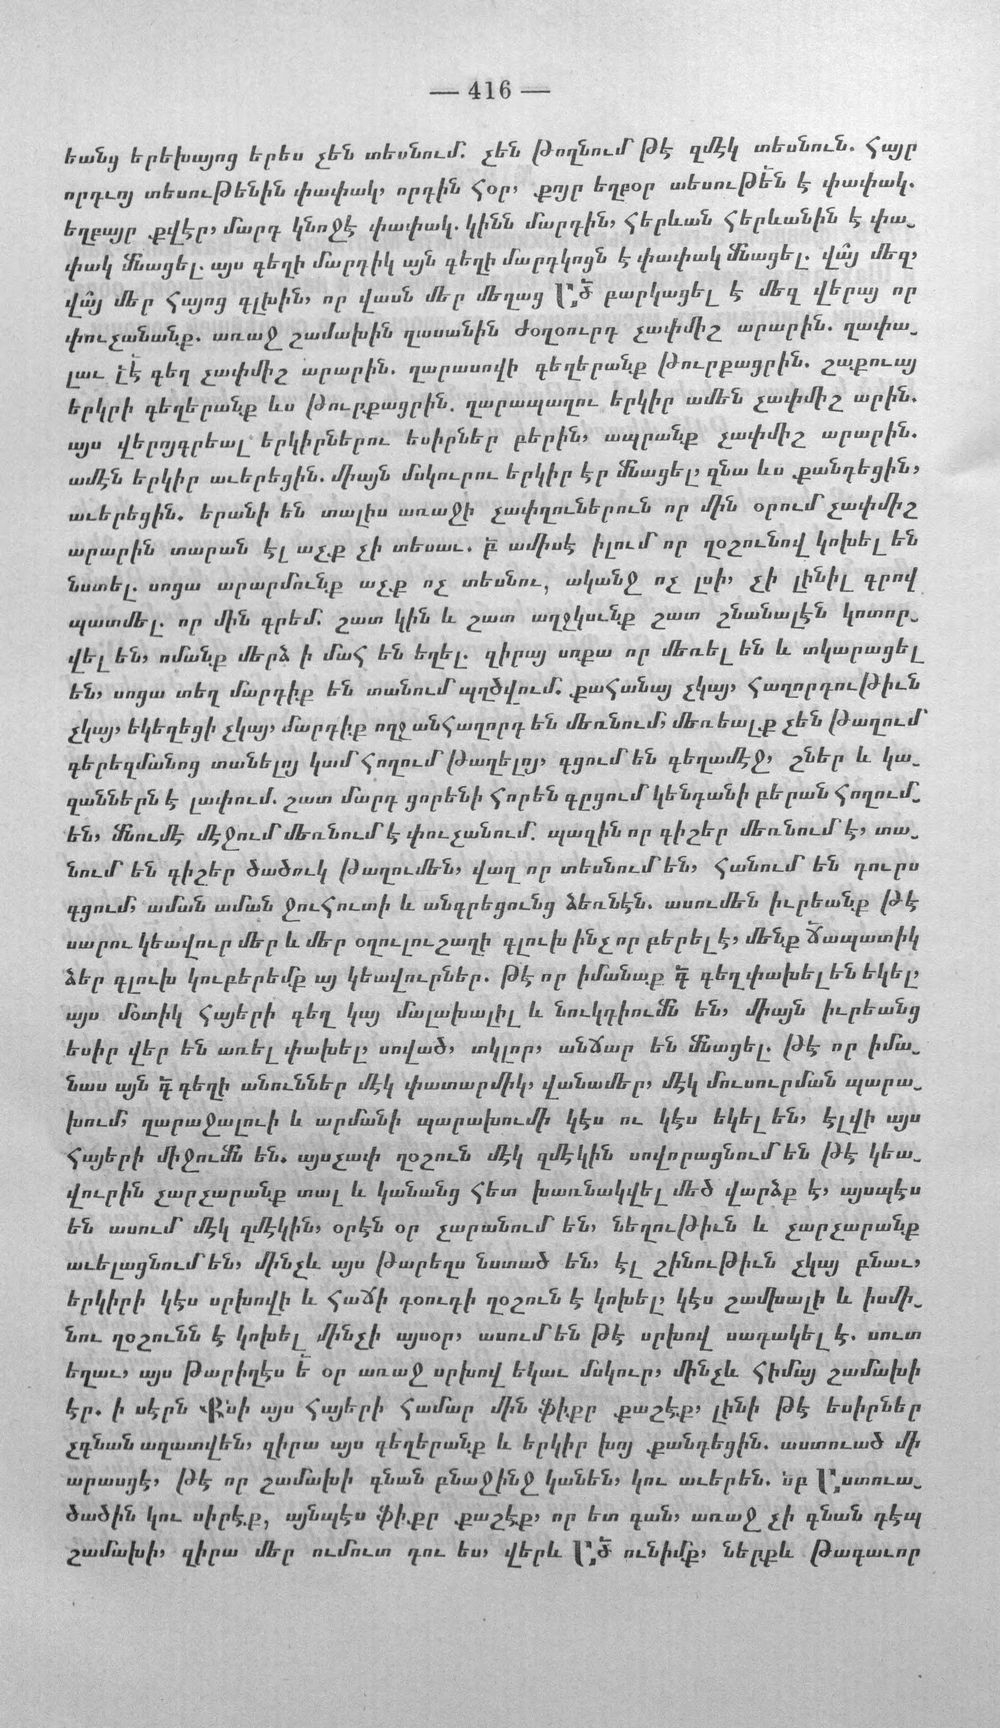 — 416 —
եանց երեխայոց երես չեն տեսնում. չեն թողնում թէ զմէկ տեսնուն. Հայր
որդւոյ տեսութենին փափակ, որդին Հօր, քոյր եղբօր տեսութեն է փափակ.
եղբայր քվէր, մարդ կնոջէ փափակ. կինն մարդին, Հերևան Հերևանին է փա֊
փակ մնացել. այս գեղի մարդիկ այն գեղի մարդկոցն է փափակ մնացել. վա՜յ մեզ,
վա՜յ մեր Հայոց գլխին, որ վասն մեր մեղաց Ած բարկացել է մեզ վերայ որ
փուչանանք. առաջ շամախին ղասանին Ժօղօուրդ չափմիշ արարին. ղափա֊
լաւ է գեղ չափմիշ արարին. ղարասովի գեղերանք թուրքացրին. շաքուայ
երկրի գեղերանք ևս թուրքացրին. ղարապաղու երկիր ամեն չափմիշ արին.
այս վերոյգրեալ երկիրներու եսիրներ բերին, ապրանք չափմիշ արարին.
ամէն երկիր աւերեցին. միայն մսկուրու երկիր էր մնացել, զնա ևս քանդեցին,
աւերեցին. երանի են տալիս առաջի չափղուներուն որ մին օրում չափմիշ
արարին տարան էլ աչք չի տեսաւ. բ ամիսէ իլում որ ղօշունով կոխել են
նստել. սոցա արարմունք աչք ոչ տեսնու, ականջ ոչ լսի, չի լինիլ գրով
պատմել. որ մին գրեմ. շատ կին և շատ աղջկսւնք շատ շնանալէն կոտոր֊
վել են, ոմանք մերձ ի մահ են եղել. զիրայ սոքա որ մեռել են և տկարացել
են, սոցա տեղ մարդիք են տանում պղծվում. քահանայ չկայ, Հաղորդութիւն
չկայ, եկեղեցի չկայ, մարդիք ողջ անհաղորդ են մեռնում, մեռեալք չեն թաղում
գերեզմանոց տանելոյ կամ Հողում թաղելոյ, գցում են գեղամէջ, շներ և կա֊
զաններն է լափում. շատ մարդ ցորենի Հորեն գըցում կենդանի բերան Հողում֊
են, մնումէ մէջում մեռնում է փուչանում. պաղին որ գիշեր մեռնում է, տա֊
նում են գիշեր ծածուկ թաղումեն, վաղ որ տեսնում են, Հանում են դուրս
գցում, աման աման ջուհուտի և անգրեցունց ձեռնէն. ասումեն իւրեանք թէ
սարու կեավուր մեր և մեր օղուլուշաղի գլուխ ինչ որ բերել է, մենք ճապատիկ
ձեր գլուխ կուբերեմք այ կեավուրներ. թէ որ իմանաք գեղ փախել են եկել,
այս մօտիկ Հայերի գեղ կայ մալախալիլ և նուկդիումն են, միայն իւրեանց
եսիր վեր են առել փախել, սոված, տկլոր, անճար են մնացել. թէ որ իմա֊
նաս այն գեղի անուններ մէկ փատարմիկ, վանամեր, մէկ մուսուրման պարա֊
խում, ղարաջալուի և արմանի պարախումի կէս ու կէս եկել են, էլվի այս
Հայերի միջումն են. այսչափ ղօշուն մէկ զմէկին սովորացնում են թէ կեա֊
վուրին չարչարանք տալ և կանանց Հետ խառնակվել մեծ վարձք է, այսպէս
են ասում մէկ զմէկին, օրէն օր չարանում են, նեղութիւն և չարչարանք
աւելացնում են, մինչև այս թարեղս նստած են, էլ շինութիւն չկայ բնաւ,
երկիրի կէս սրխովի և Հաճի դօուդի ղօշուն է կոխել, կէս շամխալի և իսմի֊
նու ղօշունն է կոխել մինչի այսօր, ասում են թէ սրխով սադակել է. սուտ
եղաւ, այս թարիղէս է օր առաջ սրխով եկաւ մսկուր, մինչև Հիմայ շամախի
էր. ի սէրն Քսի այս Հայերի Համար մին ֆիքր քաշէք, լինի թէ եսիրներ
չգնան ազատվեն, զիրա այս գեղերանք և երկիր խոյ քանդեցին. աստուած մի
արասցէ, թէ որ շամախի գնան բնաջինջ կանեն, կու աւերեն. սբ Աստուա֊
ծածին կու սիրէք, այնպէս ֆիքր քաշէք, որ ետ գան, առաջ չի գնան դէպ
շամախի, զիրա մեր ումուտ դու ես, վերև Ած ունիմք, ներքև թագաւոր